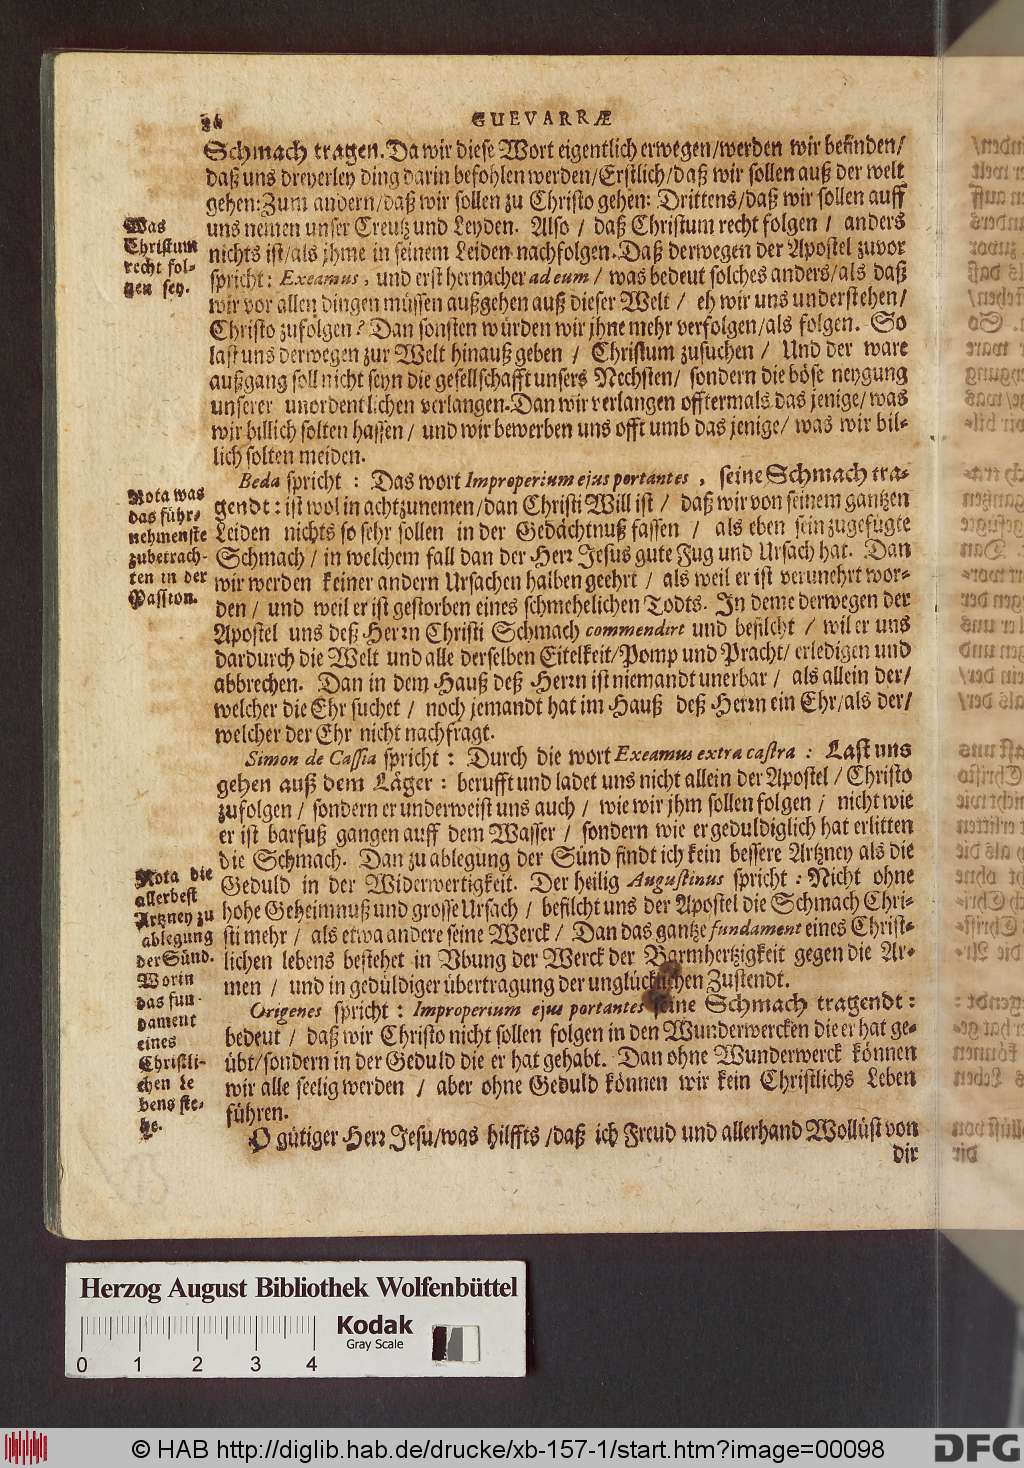 GUEVARRÆ
Schmach tragen. Da wir diese Wort eigentlich erwegen/werden wir befinden/
daß uns dreyerley ding darin befohlen werden/Erstlich/daß wir sollen auß der welt
gehen: Zum andern/daß wir sollen zu Christo gehen: Drittens/daß wir sollen auff
uns nemen unser Creutz und Leyden. Also / daß Christum recht folgen / anders
nichts ist/als jhme in seinem Leiden nachfolgen. Daß derwegen der Apostel zuvor
spricht: Exeamus, und erst hernacher ad eum / was bedeut solches anders/als daß
wir vor allen dingen müssen außgehen auß dieser Welt / eh wir uns understehen/
Christo zufolgen? Dan sonsten würden wir jhne mehr verfolgen/als folgen. So
last uns derwegen zur Welt hinauß geben / Christum zusuchen / Und der ware
außgang soll nicht seyn die gesellschafft unsers Nechsten/ sondern die böse neygung
unserer unordentlichen verlangen. Dan wir verlangen offtermals das jenige/was
wir billich solten hassen / und wir bewerben uns offt umb das jenige/ was wir bil-
lich solten meiden.
Was
Christum
recht fol-
gen sey.
Beda spricht : Das wort Improperium ejus portantes, seine Schmach tra-
gendt: ist wol in acht zunemen/dan Christi Will ist / daß wir von seinem gantzen
Leiden nichts so sehr sollen in der Gedächtnuß fassen / als eben sein zugefügte
Schmach / in welchem fall dan der Herr Jesus gute Fug und Ursach hat. Dan
wir werden keiner andern Ursachen halben geehrt / als weil er ist verunehrt wor-
den / und weil er ist gestorben eines schmehelichen Todts. In deme derwegen der
Apostel uns deß Herrn Christi Schmach commendirt und befilcht / wil er uns
dardurch die Welt und alle derselben Eitelkeit/Pomp und Pracht/ erledigen und
abbrechen. Dan in dem Hauß deß Herrn ist niemandt unerbar / als allein der/
welcher die Ehr suchet / noch jemandt hat im Hauß deß Herrn ein Ehr/als der/
welcher der Ehr nicht nachfragt.
Nota was
das führ-
nehmenste
zubetrach-
ten in der
Passion.
Simon de Cassia spricht : Durch die wort Exeamus extra castra : Last uns
gehen auß dem Läger : berufft und ladet uns nicht allein der Apostel / Christo
zufolgen / sondern er underweist uns auch / wie wir jhm sollen folgen / nicht wie
er ist barfuß gangen auff dem Wasser / sondern wie er geduldiglich hat erlitten
die Schmach. Dan zu ablegung der Sünd findt ich kein bessere Artzney als die
Geduld in der Widerwertigkeit. Der heilig Augustinus spricht : Nicht ohne
hohe Geheimnuß und grosse Ursach / befilcht uns der Apostel die Schmach Chri-
sti mehr / als etwa andere seine Werck / Dan das gantze fundament eines Christ-
lichen lebens bestehet in Ubung der Werck der Barmhertzigkeit gegen die Ar-
men / und in gedüldiger übertragung der unglücklichen Zustendt.
Nota die
allerbest
Artzney zu
ablegung
der Sünd.
Worin
das fun-
dament
eines
Christli-
chen Le
bens ste-
he.
Origenes spricht : Improperium ejus portantes seine Schmach tragendt :
bedeut / daß wir Christo nicht sollen folgen in den Wunderwercken die er hat ge-
übt/sondern in der Geduld die er hat gehabt. Dan ohne Wunderwerck können
wir alle seelig werden / aber ohne Geduld können wir kein Christlichs Leben
führen.
O gütiger Herr Jesu/was hilffts /daß ich Freud und allerhand Wollüst von
dir
Herzog August Bibliothek Wolfenbüttel
Kodak
Gray Scale
0 1 2 3 4
© HAB http://diglib.hab.de/drucke/xb-157-1/start.htm?image=00098
DFG